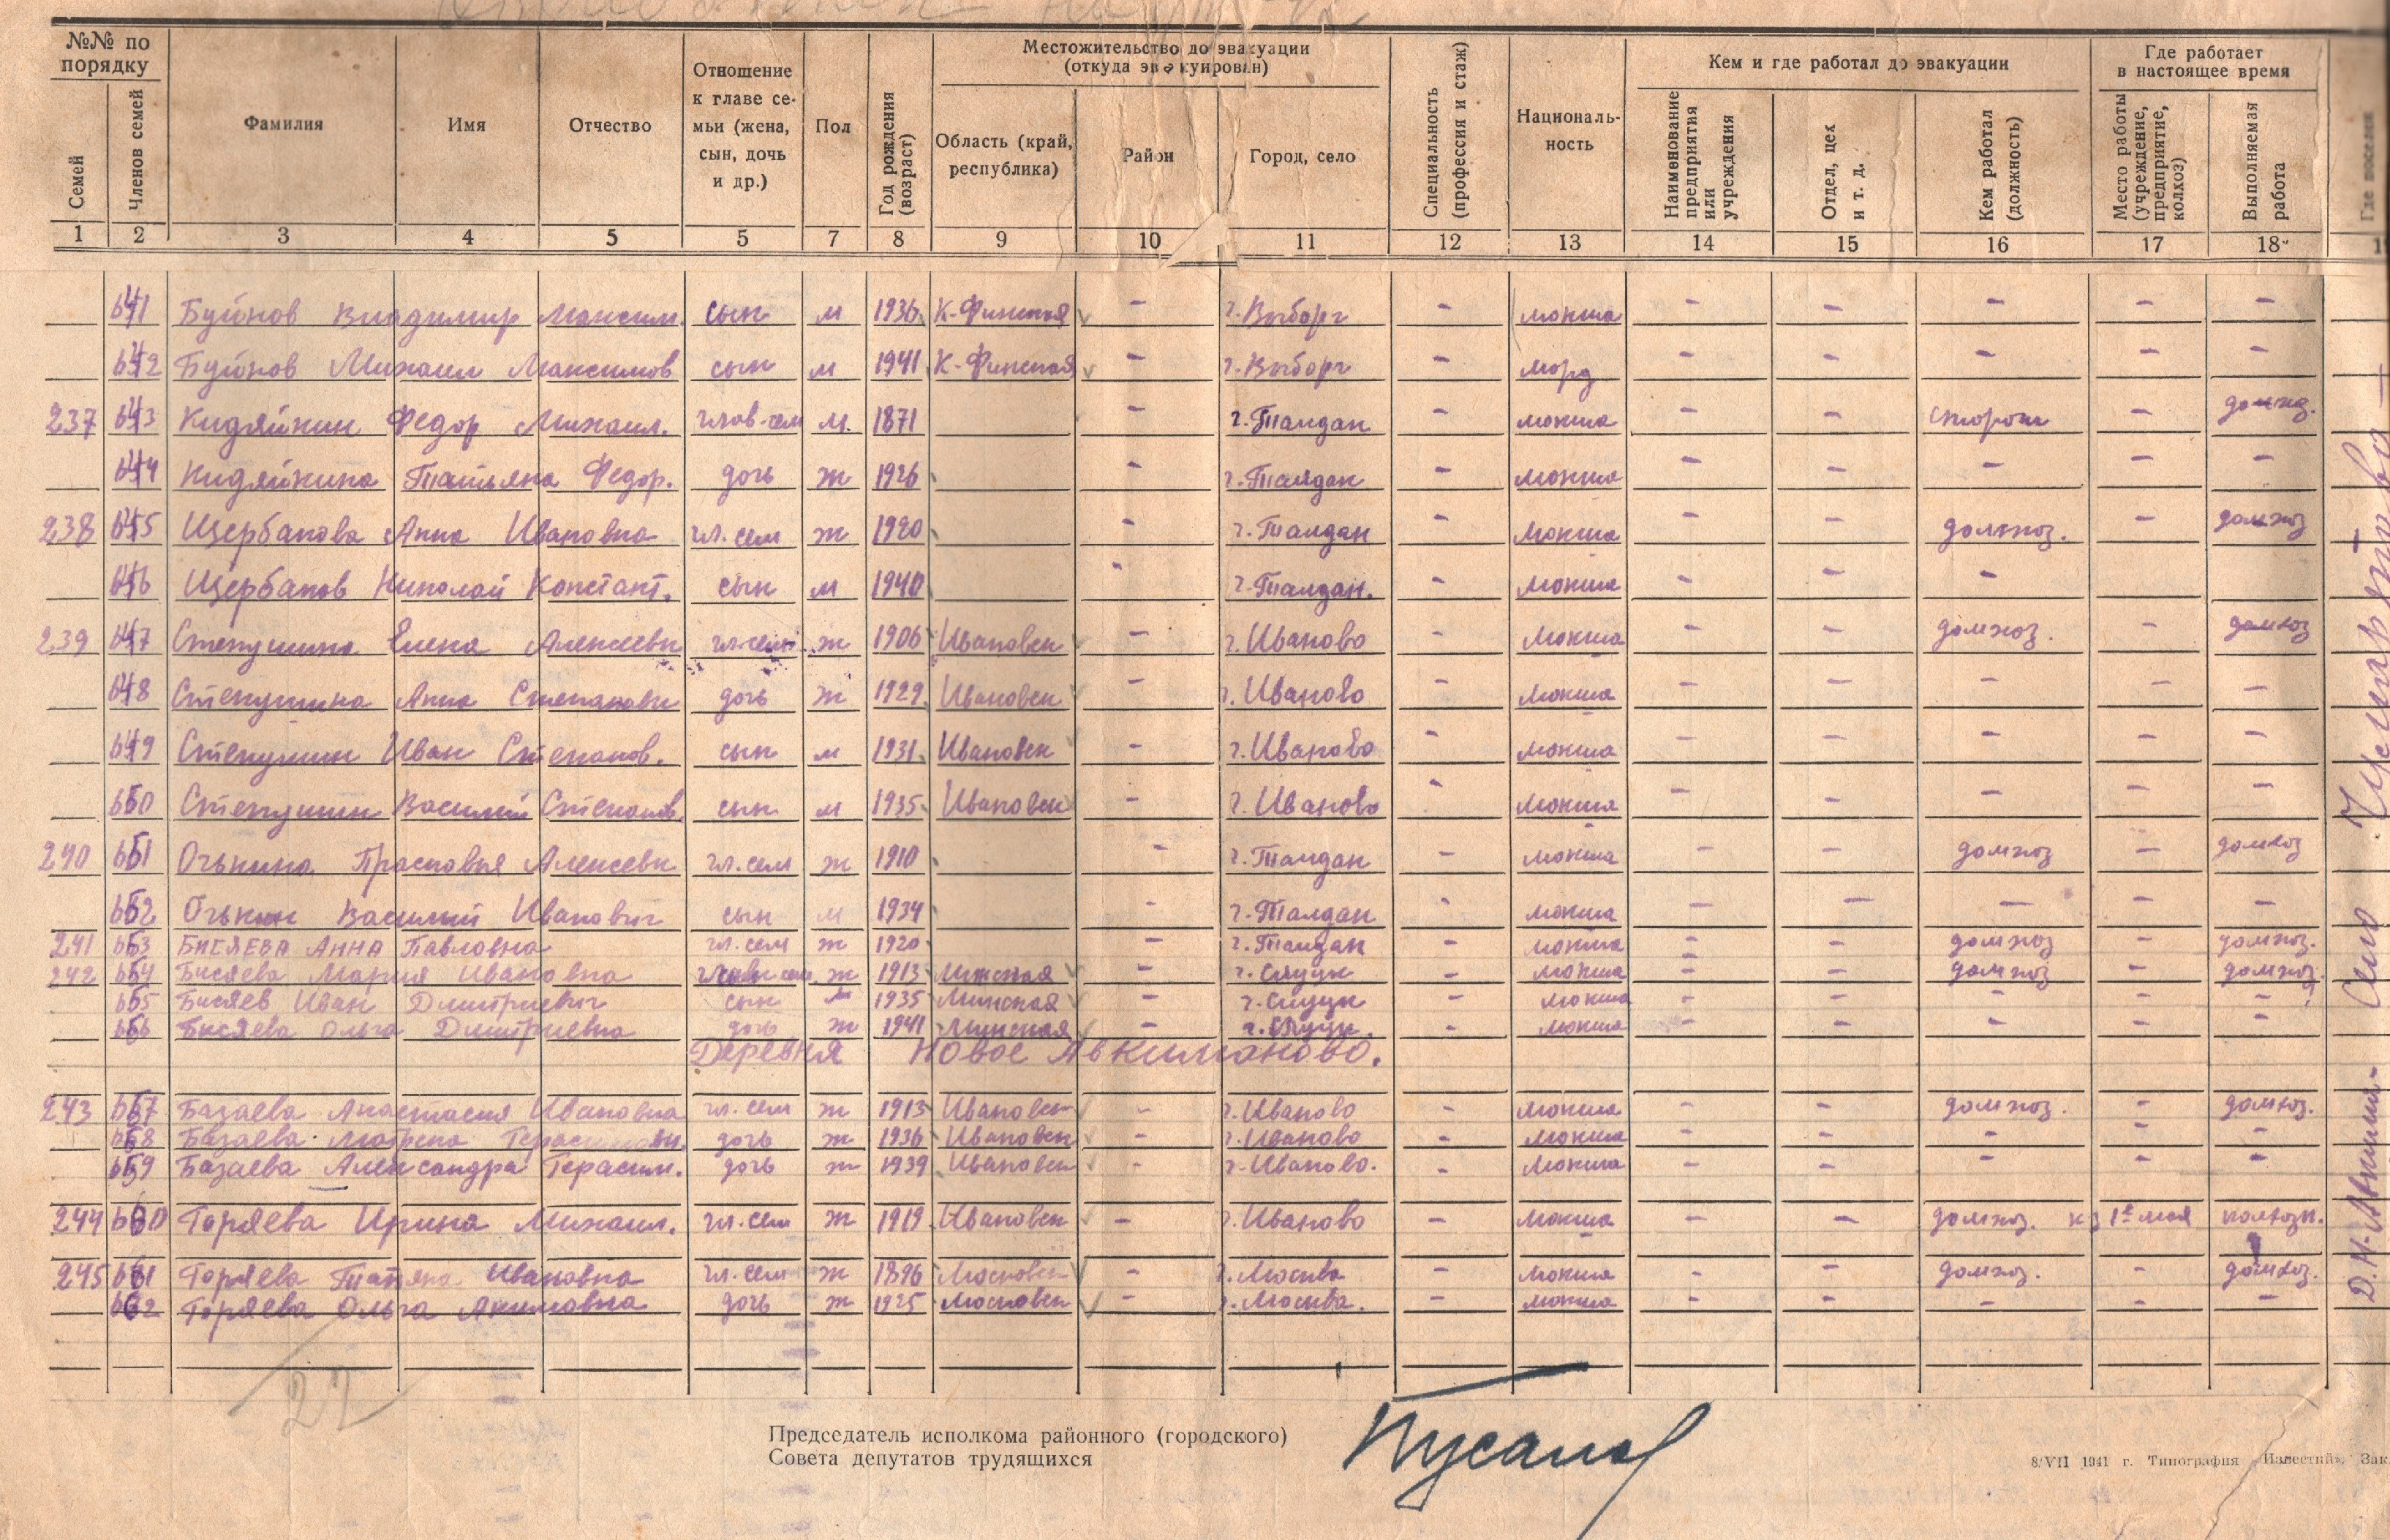 №№ по порядку
Местожительство до эвакуации (откуда эвакуирован)
Кем и где работал до эвакуации
Где работает в настоящее время
Семей
Членов семей
Фамилия
Имя
Отчество
Отношение к главе се-
мьи (жена,
сын, дочь
и др.)
Пол
Год рождения (возраст)
Область (край, республика)
Район
Город, село
Специальность (профессия и стаж)
Националь-
ность
Наименование предприятия или учреждения
Отдел, цех и т. д.
Кем работал (должность)
Место работы (учреждение, предприятие, колхоз)
Выполняемая работа
1 2 3 4 5 5 7 8 9 10 11 12 13 14 15 16 17 18
641 Буйнов Владимир Максим. сын м 1936 К-Финская - г. Выборг - мокша - - - - -
642 Буйнов Михаил Максимов сын м 1941 К-Финская - г. Выборг - морд - - - - -
237 643 Кидяйкин Федор Михаил. глав-сем м. 1871 - г. Талдан - мокша - - сторож -
644 Кидяйкина Татьяна Федор. дочь ж 1926 - г. Талдан - мокша - - - - -
238 645 Щербакова Анна Ивановна гл. сем ж 1920 - г. Талдан - мокша - - домхоз. - домхоз
646 Щербаков Николай Констант. сын м 1940 - г. Талдан. - мокша - - -
239 647 Степушина Елена Алексеевн гл. сем ж 1906 Ивановск - г. Иваново - мокша - - домхоз. - домхоз
648 Степушина Анна Степановн дочь ж 1929 Ивановск - г. Иваново - мокша - - - - -
649 Степушин Иван Степанов. сын м 1931 Ивановск - г. Иваново - мокша - - - - -
650 Степушин Василий Степанов. сын м 1935 Ивановск - г. Иваново - мокша - - - - -
240 651 Очькина Прасковья Алексевн гл. сем ж 1910 - г. Талдан - мокша - - домхоз - домхоз
652 Очькин Василий Иванович сын м 1934 г. Талдан - мокша - - - - -
241 653 БИСЯЕВА АННА Павловна гл. сем ж 1920 - г. Талдан - мокша - - домхоз - домхоз.
242 654 Бисяева Мария Ивановна ж 1913 Минская - г. Слуцк - мокша - - домхоз - домхоз.
655 Бисяев Иван Дмитриевич сын м 1935 Минская - г. Слуцк - мокша - - - - -
656 Бисяева Ольга Дмитриевна дочь ж 1941 Минская - г. Слуцк. - мокша - - - - -
Деревня Новое Авкиманово.
243 657 Базаева Анастасия Ивановна гл. сем ж 1913 Ивановск - г. Иваново - мокша - - домхоз. - домхоз.
658 Базаева Матрена дочь ж 1936 Ивановск - г. Иваново - мокша - - - - -
659 Базаева Александра Герасим. дочь ж 1939 Ивановск - г. Иваново. - мокша - - - - -
244 660 Горяева Ирина Михаил. гл. сем ж 1919 Ивановск - г. Иваново - мокша - - домхоз. к-з 1е мая колхозн.
245 661 Горяева Татьяна Ивановна гл. сем ж 1896 Московск - г. Москва - мокша - - домхоз. - домхоз.
662 Горяева Ольга Акимовна дочь ж 1925 Московск - г. Москва. - мокша - - - - -
22
Председатель исполкома районного (городского)
Совета депутатов трудящихся
8/VII 1941 г. Типография «Известий». Зак.